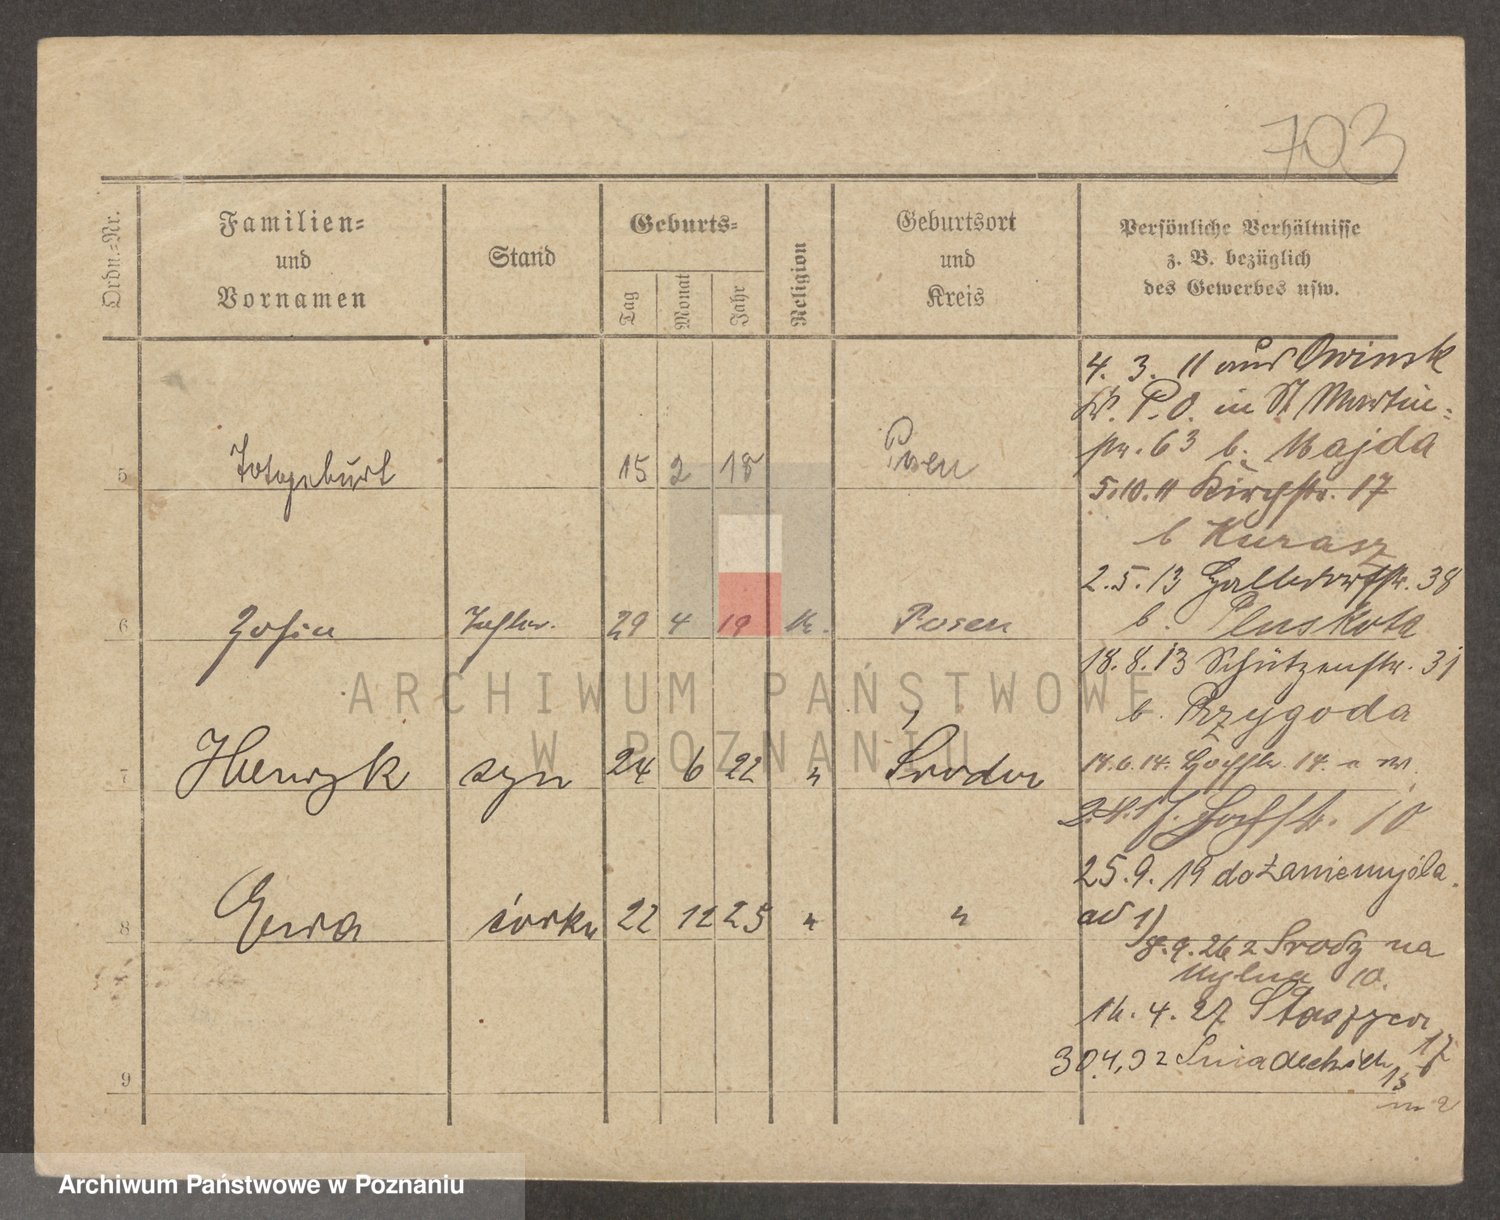 703
Ordn.-Nr.
Familien-
und
Vornamen
Stand
Geburts-
Tag
Monat
Jahr
Religion
Geburtsort
und
Kreis
Persönliche Verhältnisse
z. B. bezüglich
des Gewerbes usw.
4. 3. 11 aus Owinsk
P. O. in St Martin-
63 b. Majda
5 Totgeburt 15 2 18 Posen
5.10.11 Kirchstr. 17
b Kurasz
2.5.13 38
6 Zofia Tochter. 29 4 19 k. Posen
b. Pluskota
18.8.13 Schützenstr. 31
b. Przygoda
7 Henryk syn 24 6 22 " Środa
14.6.14. 14.
10
25.9.19 do Zaniemyśla.
8 Ewa córka 22 12 25 " "
ad 1)
8.9.26 z Środy na
Mylna 10.
16.4.27 Staszyca 17
30.4.32 Śniadeckich 13
m 2
9
ARCHIWUM PAŃSTWOWE
W POZNANIU
Archiwum Państwowe w Poznaniu